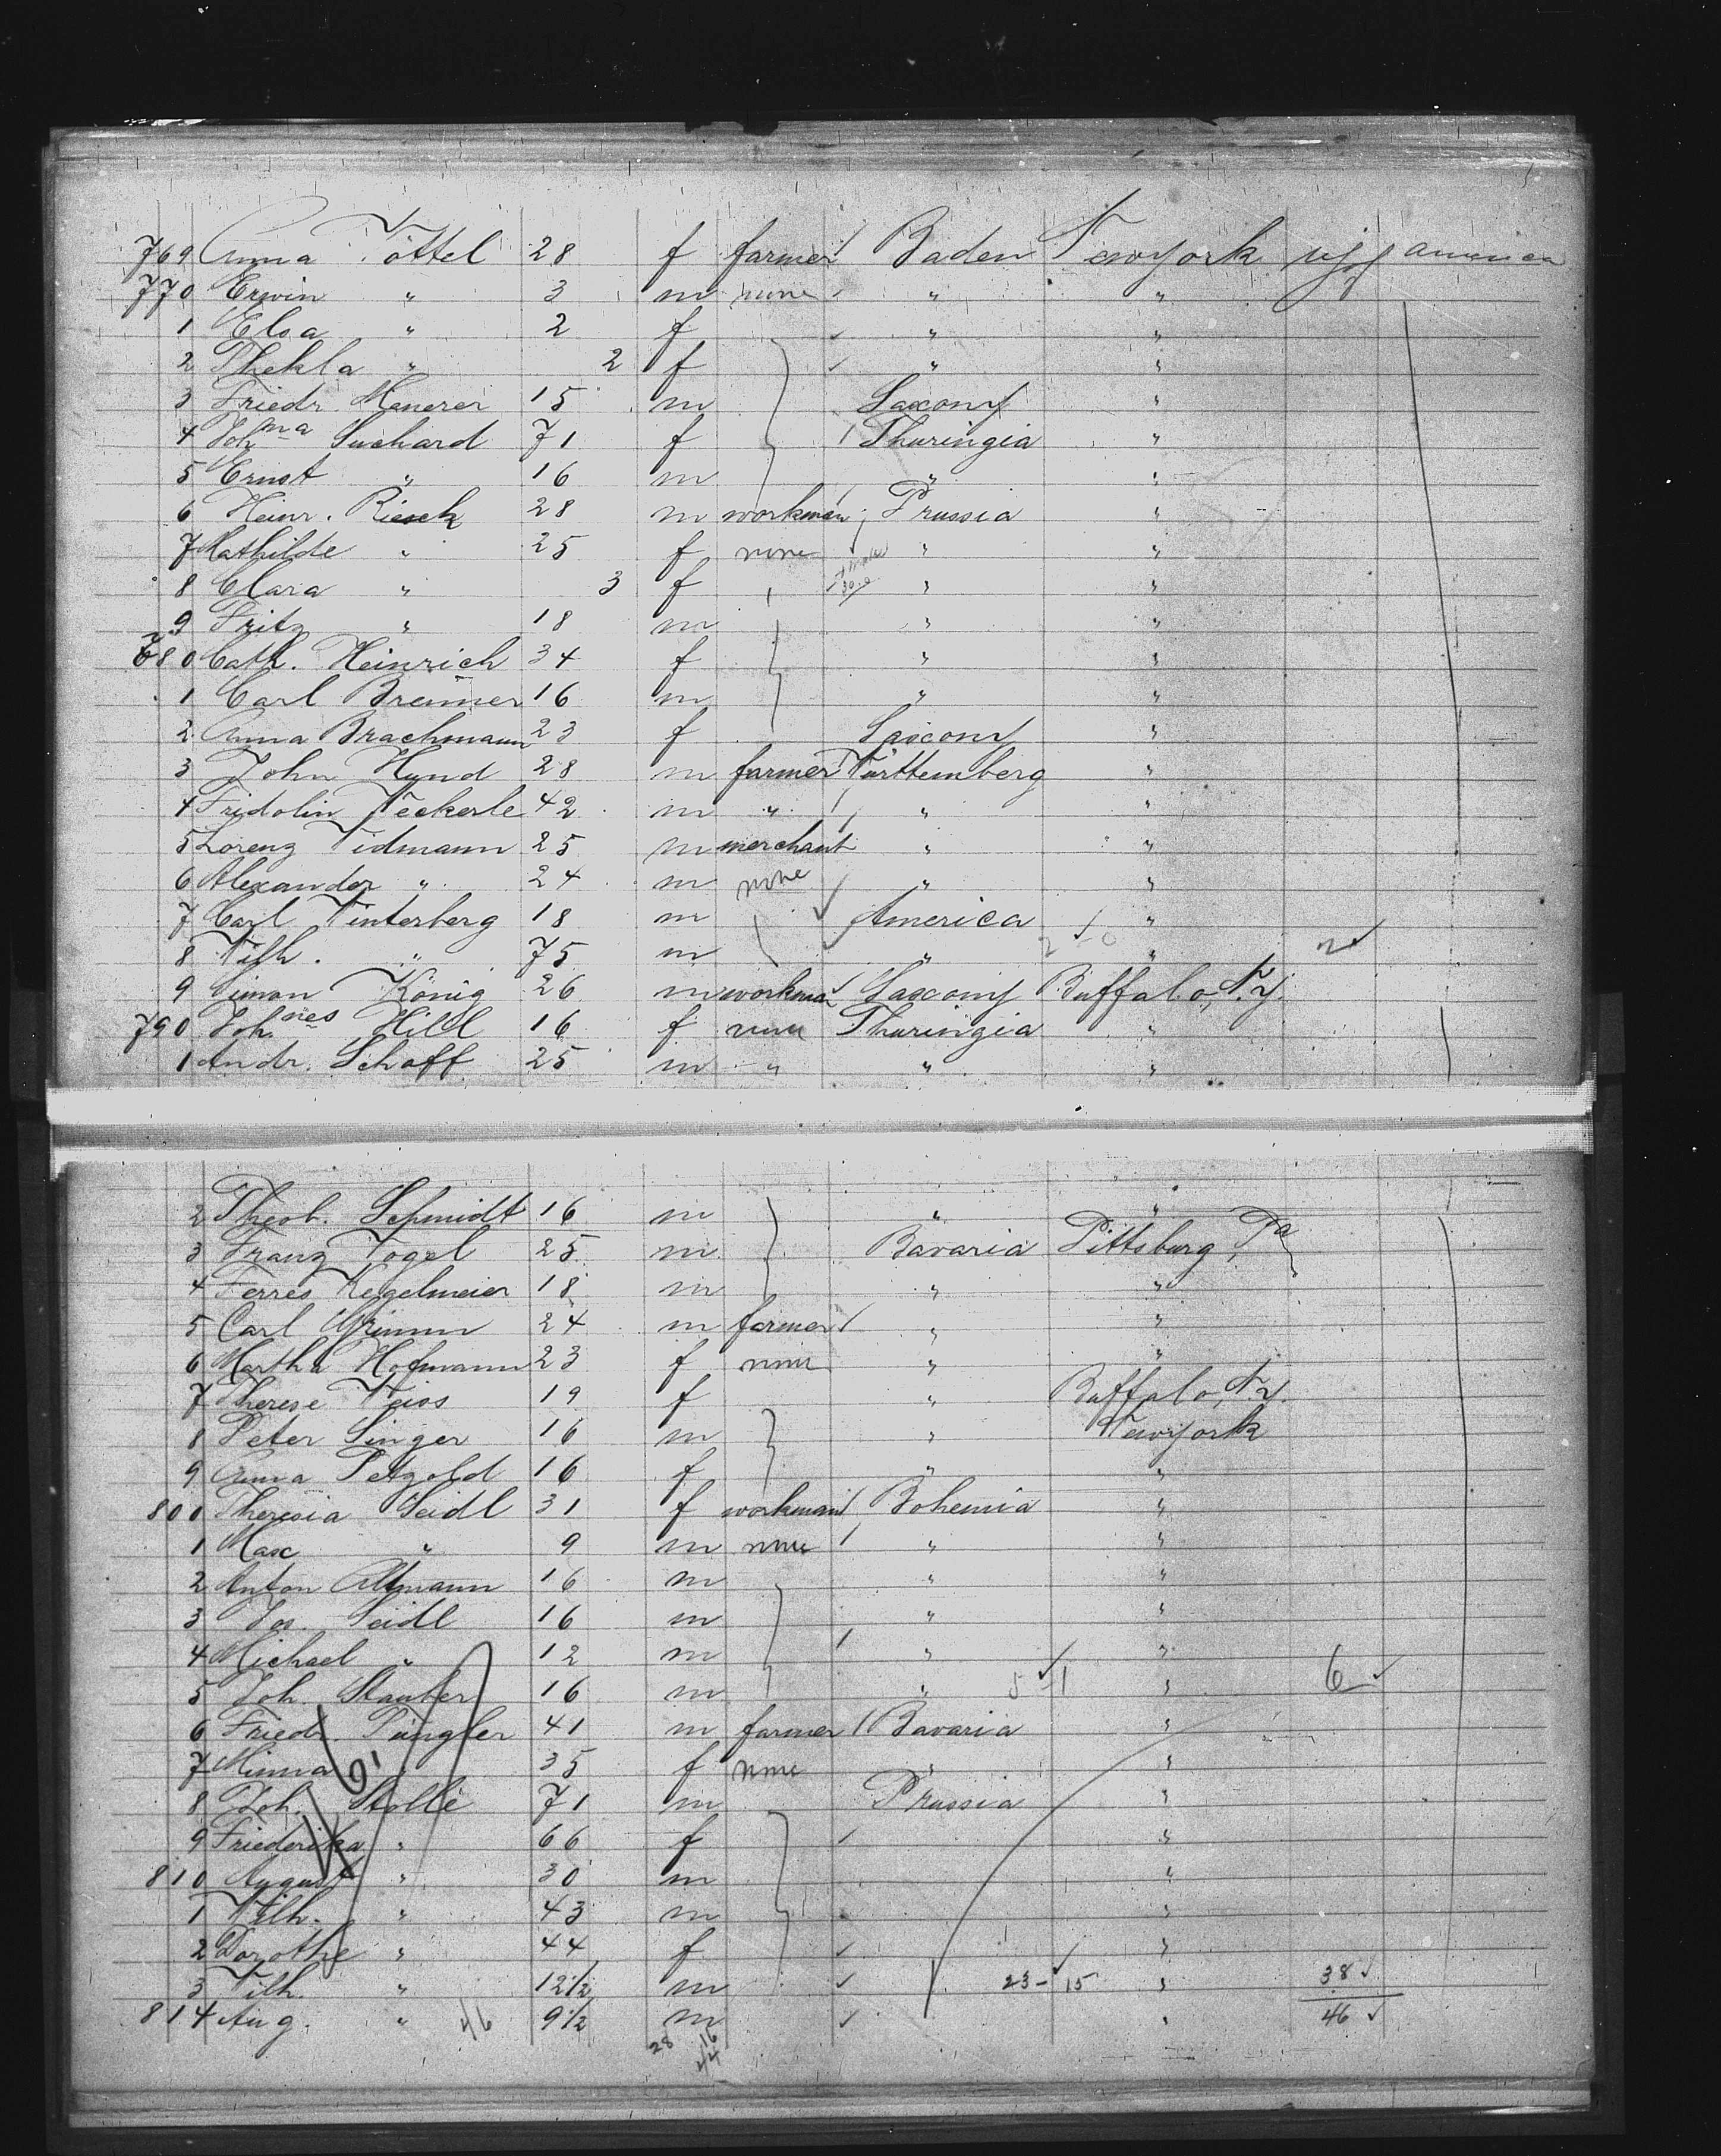 769 Anna Vöttel 28 f farmer Baden Newyork America
770 Erwin " 3 m none " "
1 Elsa " 2 f " "
2 Thekla " 2 f " "
3 Friedr. Menerer 15 m Saxony "
4 Johma Suchard 71 f Thuringia "
5 Ernst " 16 m " "
6 Heinr. Rieseck 28 m workman Prussia "
7 Mathilde " 25 f none " "
8 Clara " 3 f " " "
9 Fritz " 18 m " "
780 Cath. Heinrich 34 f " "
1 Carl Bremmer 16 m " "
2 Anna Brachmann 23 f Saxony "
3 John Hund 28 m farmer Württemberg "
4 Fridolin Weckerle 42 m " " "
5 Lorenz Widmann 25 m merchant " "
6 Alexander " 24 m none " "
7 Carl Winterberg 18 m America "
8 Wilh. " 75 m " " 2
9 Simon König 26 m workman Saxony Buffalo, N.Y.
790 Johnes Hill 16 f none Thuringia "
1 Andr. Schoff 25 m " " "
2 Theob. Schmidt 16 m " "
3 Franz Vogel 25 m Bavaria Pittsburg, Pa
4 Ferres Kegelmeier 18 m " "
5 Carl Grimm 24 m farmer " "
6 Martha Hofmann 23 f none " "
7 Therese Weiss 19 f " Buffalo, N.Y.
8 Peter Singer 16 m " Newyork
9 Anna Petzold 16 f " "
800 Theresia Seidl 31 f workman Bohemia "
1 Max " 9 m none " "
2 Anton Altmann 16 m " "
3 Jos. Seidl 16 m " "
4 Michael " 12 m " "
5 Joh. Stauber 16 m " 5-1 " 6
6 Friedr. Püngler 41 m farmer Bavaria "
7 Minna " 35 f none " "
8 Joh. Stolle 71 m Prussia "
9 Friederika " 66 f "
810 August " 30 m "
1 Wilh. " 43 m "
2 Dorothe " 44 f "
3 Wilh. " 12 1/2 m 23-15 " 38
814 Aug. " 46 9 1/2 m " 46
28 16
44